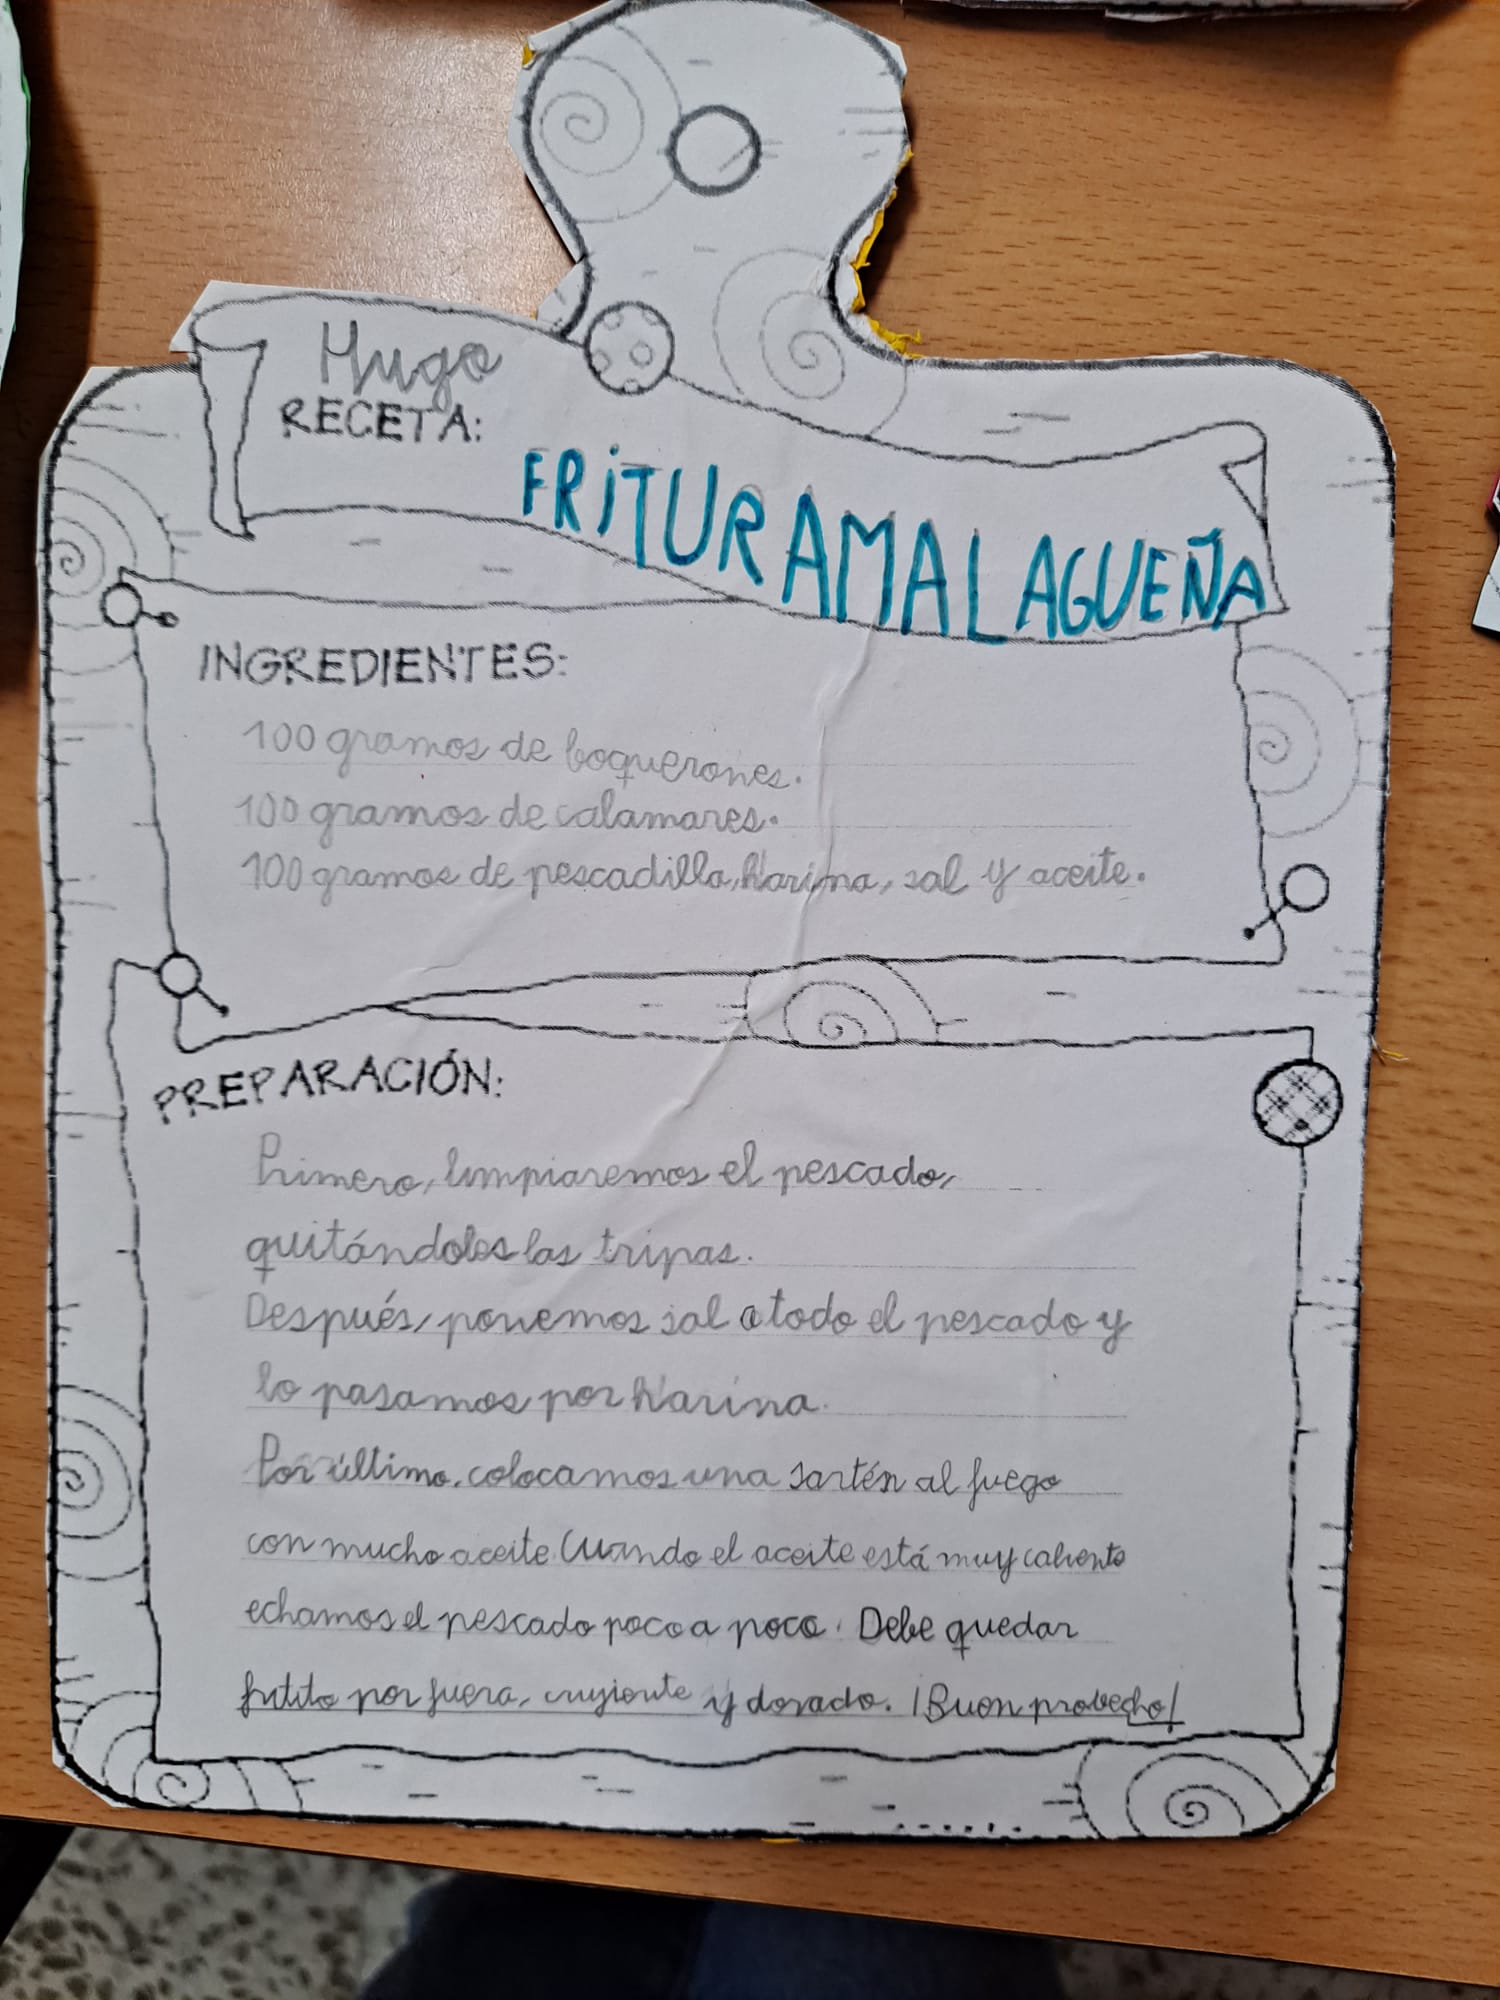 Hugo
RECETA:
FRITURA MALAGUEÑA
INGREDIENTES:
100 gramos de boquerones.
100 gramos de calamares.
100 gramos de pescadilla, harina, sal y aceite.
PREPARACIÓN:
Primero, limpiaremos el pescado,
quitándoles las tripas.
Después, ponemos sal a todo el pescado y
lo pasamos por harina.
Por último, colocamos una sartén al fuego
con mucho aceite. Cuando el aceite está muy caliente
echamos el pescado poco a poco. Debe quedar
fritito por fuera, crujiente y dorado. ¡Buen provecho!